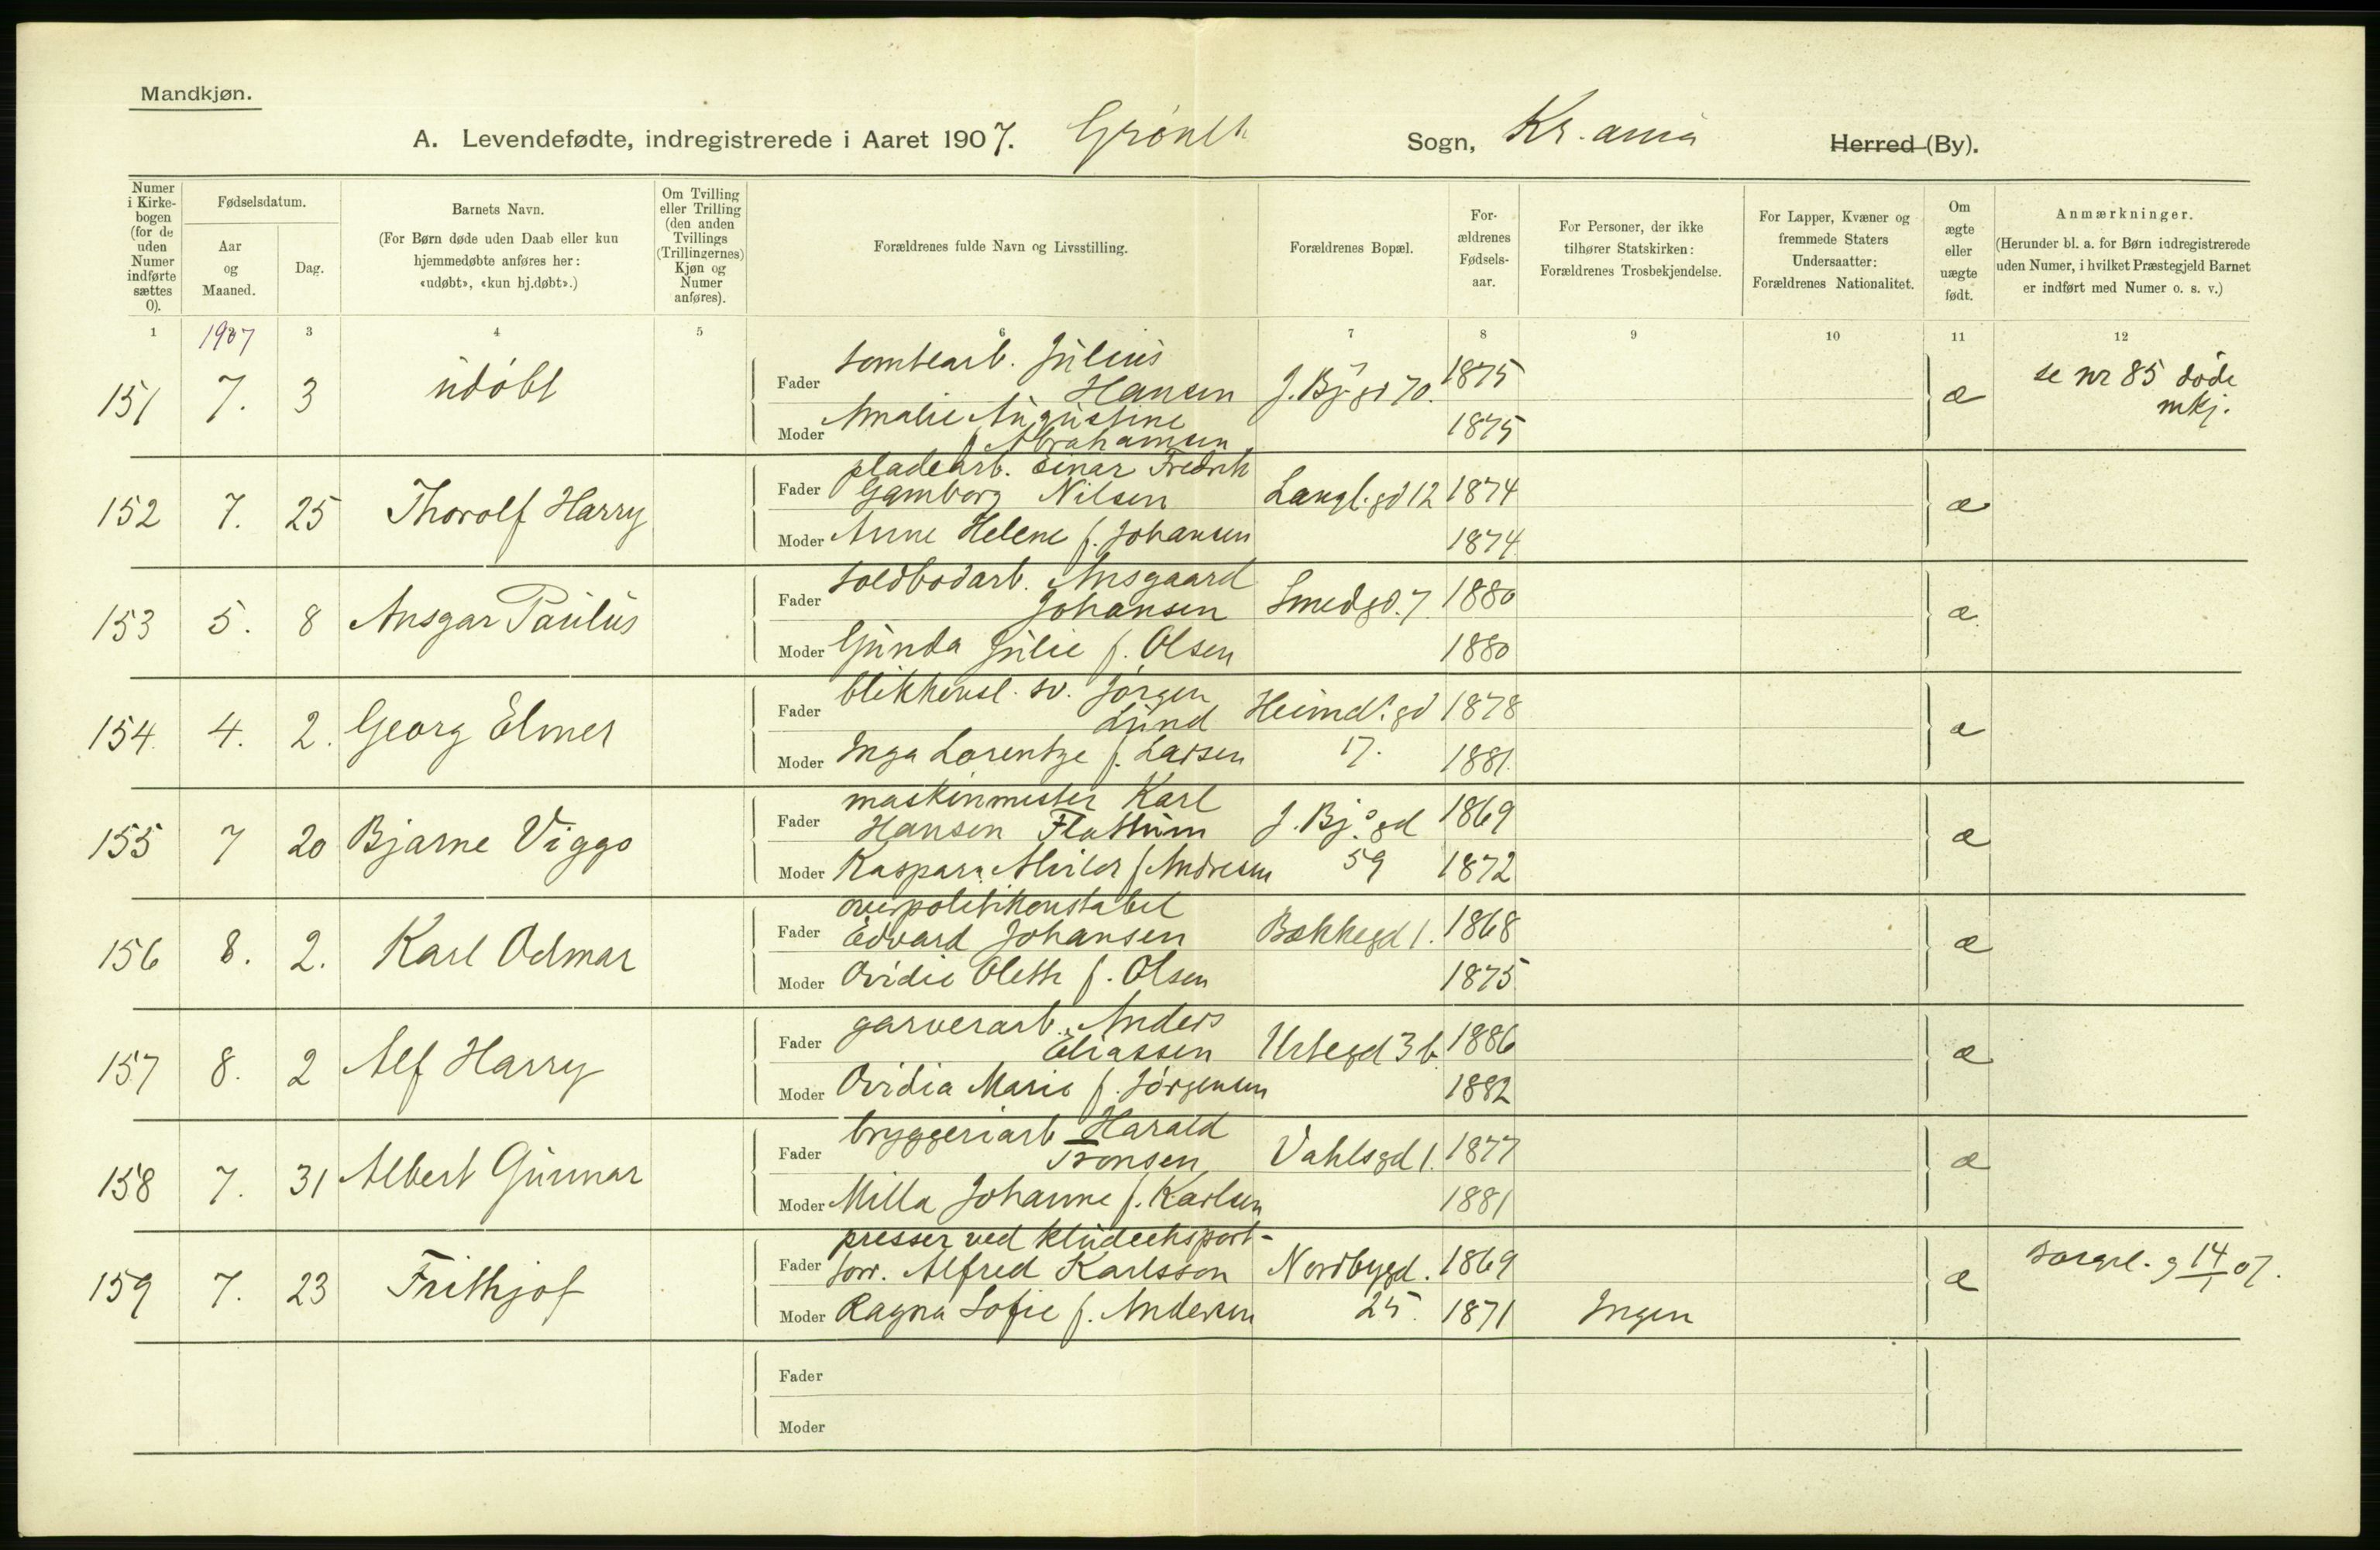 Mandkjøn.
A. Levendefødte, indregistrerede i Aaret 1907. Grønl. Sogn, Kr.ania Herred (By).
Numer i Kirkebogen (for de uden Numer indførte sættes 0).
Fødselsdatum.
Aar og Maaned.
Dag.
Barnets Navn.
(For Børn døde uden Daab eller kun hjemmedøbte anføres her: «udøbt», «kun hj.døbt».)
Om Tvilling eller Trilling (den anden Tvillings (Trillingernes) Kjøn og Numer anføres).
Forældrenes fulde Navn og Livsstilling.
Forældrenes Bopæl.
Forældrenes Fødselsaar.
For Personer, der ikke tilhører Statskirken: Forældrenes Trosbekjendelse.
For Lapper, Kvæner og fremmede Staters Undersaatter: Forældrenes Nationalitet.
Om ægte eller uægte født.
Anmærkninger.
(Herunder bl. a. for Børn indregistrerede uden Numer, i hvilket Præstegjeld Barnet er indført med Numer o. s. v.)
1 1907 3 4 5 6 7 8 9 10 11 12
151 7. 3 udøbt
Fader tomtearb. Julius Hansen J. Bj. gd 70. 1875 æ se nr 85 døde mkj.
Moder Amalie Augustine f. Abrahamsen 1875
152 7. 25 Thorolf Harry
Fader pladearb. Einar Fredrik Gamborg Nilsen Langl. gd 12 1874 æ
Moder Anne Helene f. Johansen 1874
153 5. 8 Ansgar Paulus
Fader toldbodarb. Ansgaard Johansen Smedgd. 7 1880 æ
Moder Gunda Julie f. Olsen 1880
154. 4. 2. Georg Elmer
Fader blikkensl. sv. Jørgen Lund Heimd. gd 1878 æ
Moder Inga Lorentze f. Larsen 17. 1881.
155 7 20 Bjarne Viggo
Fader maskinmester Karl Hansen Flattum J. Bj. gd 1869 æ
Moder Kaspara f. Andresen 59 1872
156 8. 2. Karl Odmar
Fader overpolitikonstabel Edvard Johansen Bækkegd 1. 1868 æ
Moder Ovidie Olette f. Olsen 1875
157 8. 2 Alf Harry
Fader garverarb. Anders Eliassen Urtegd 3 b. 1886 æ
Moder Ovidia Marie f. Jørgensen 1882
158 7. 31 Albert Gunnar
Fader bryggeriarb Harald Tronsen Vahlsgd 1. 1877 æ
Moder Milla Johanne f. Karlsen 1881
159 7. 23 Frithjof
Fader presser ved kludeeksport-forr. Alfred Karlsson Nordbygd. 1869 æ borgerl. g 14/1 07.
Moder Ragna Sofie f. Andersen 25. 1871 Ingen
Fader
Moder